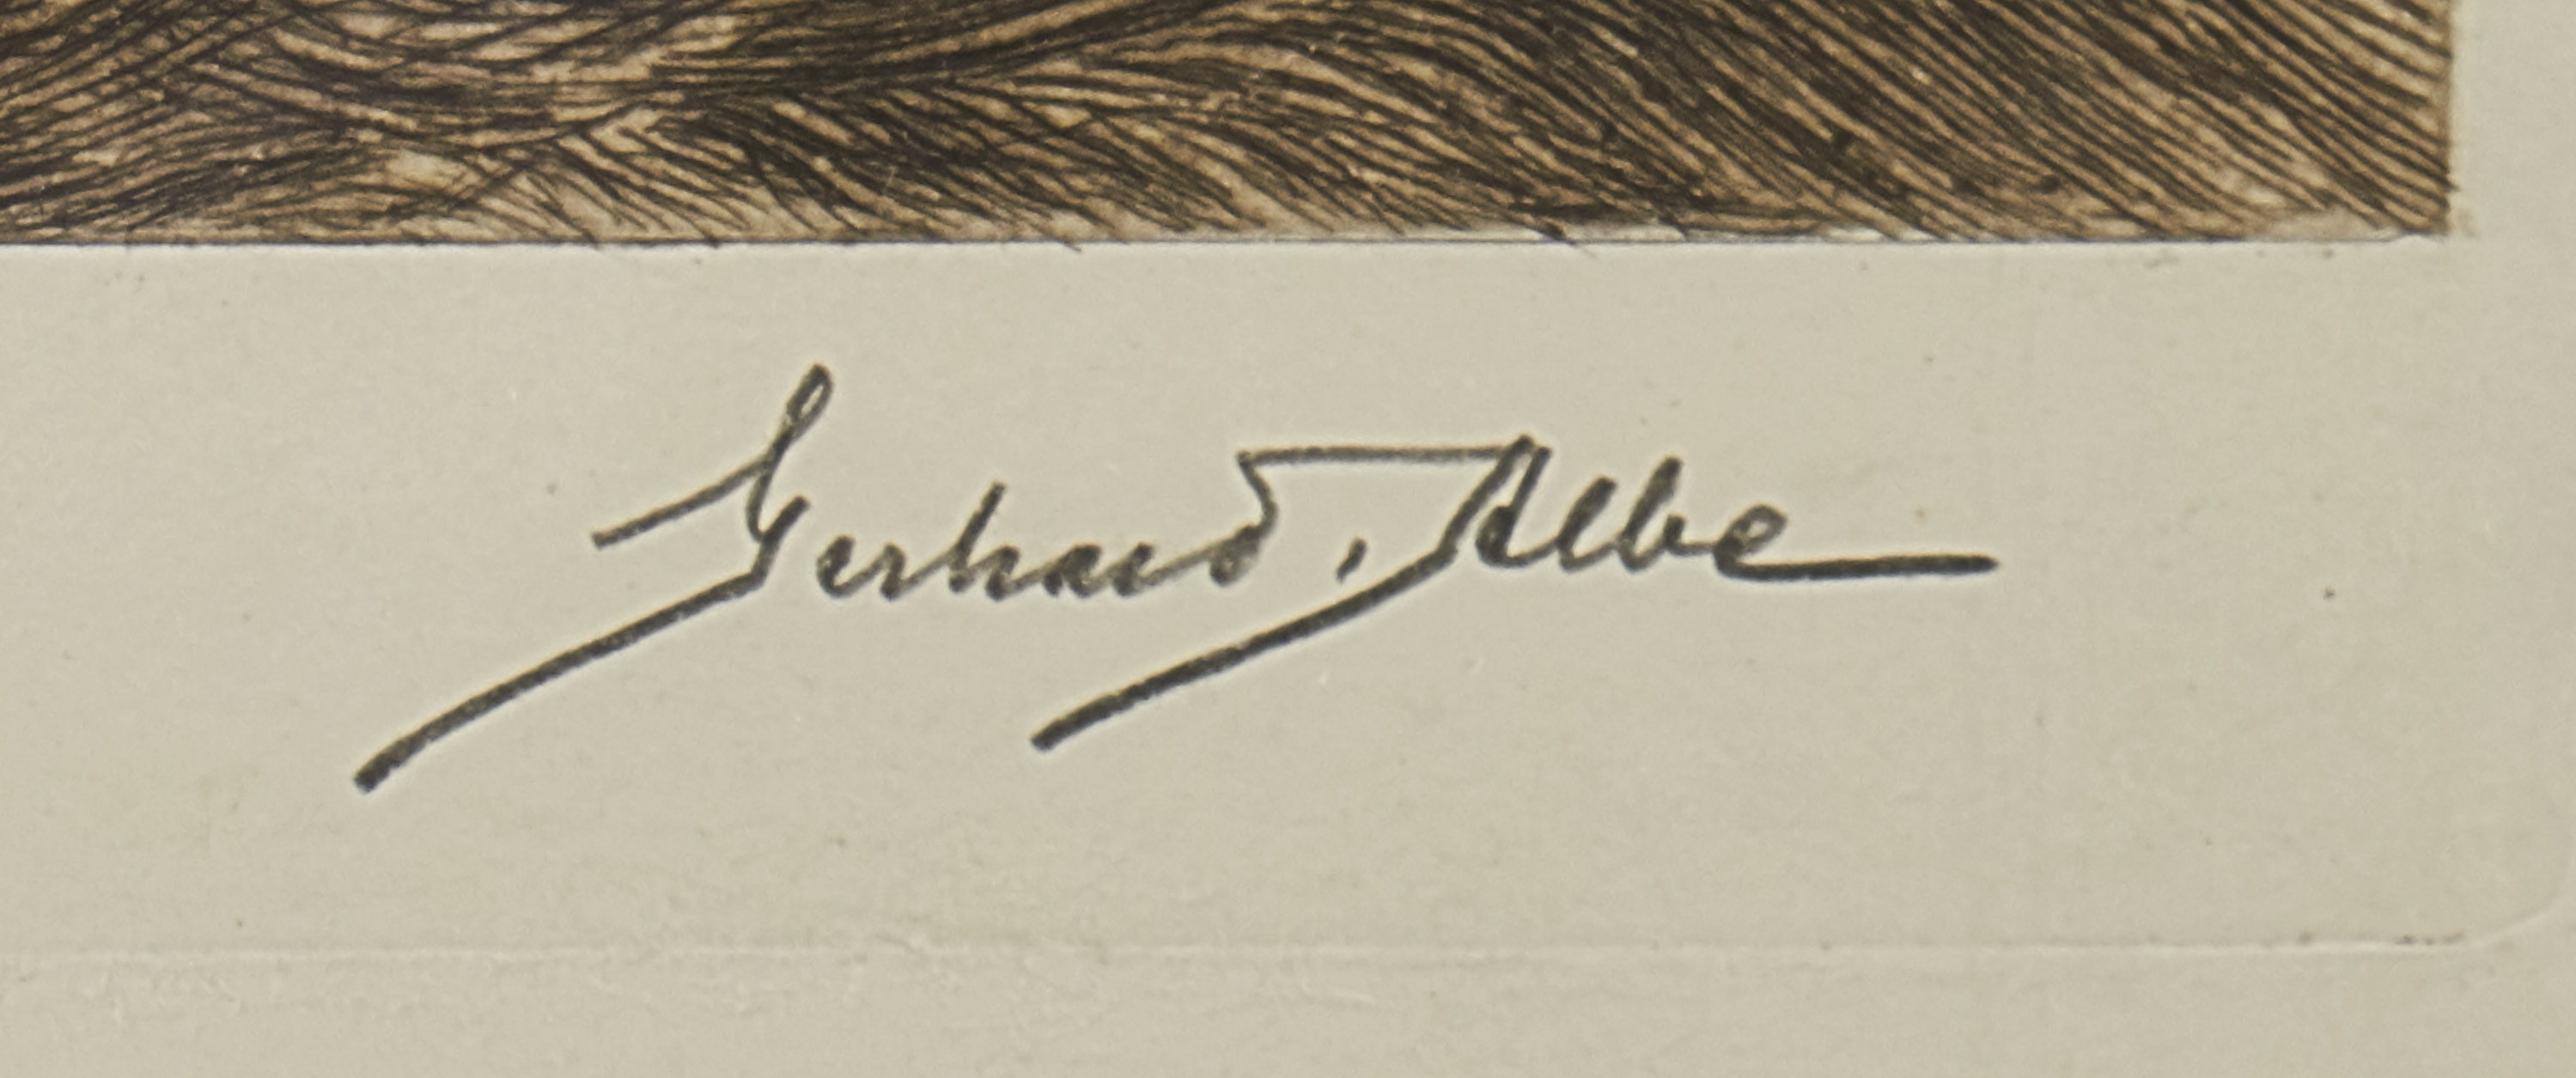 Gerhard. Albe